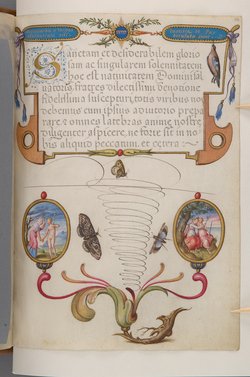 Sanctam et desyderabilem glorio
sam ac singularem solennitatem
hoc est natiuitatem Domini sal
uatoris, fratres dilectissimi deuotione
fidelissima suscepturi, totis viribus nos
debemus cum ipsius adiutorio prepa
rare, et omnes latebras animæ nostræ
diligenter aspicere, ne forte sit in no
bis aliquod peccatum, et cetera